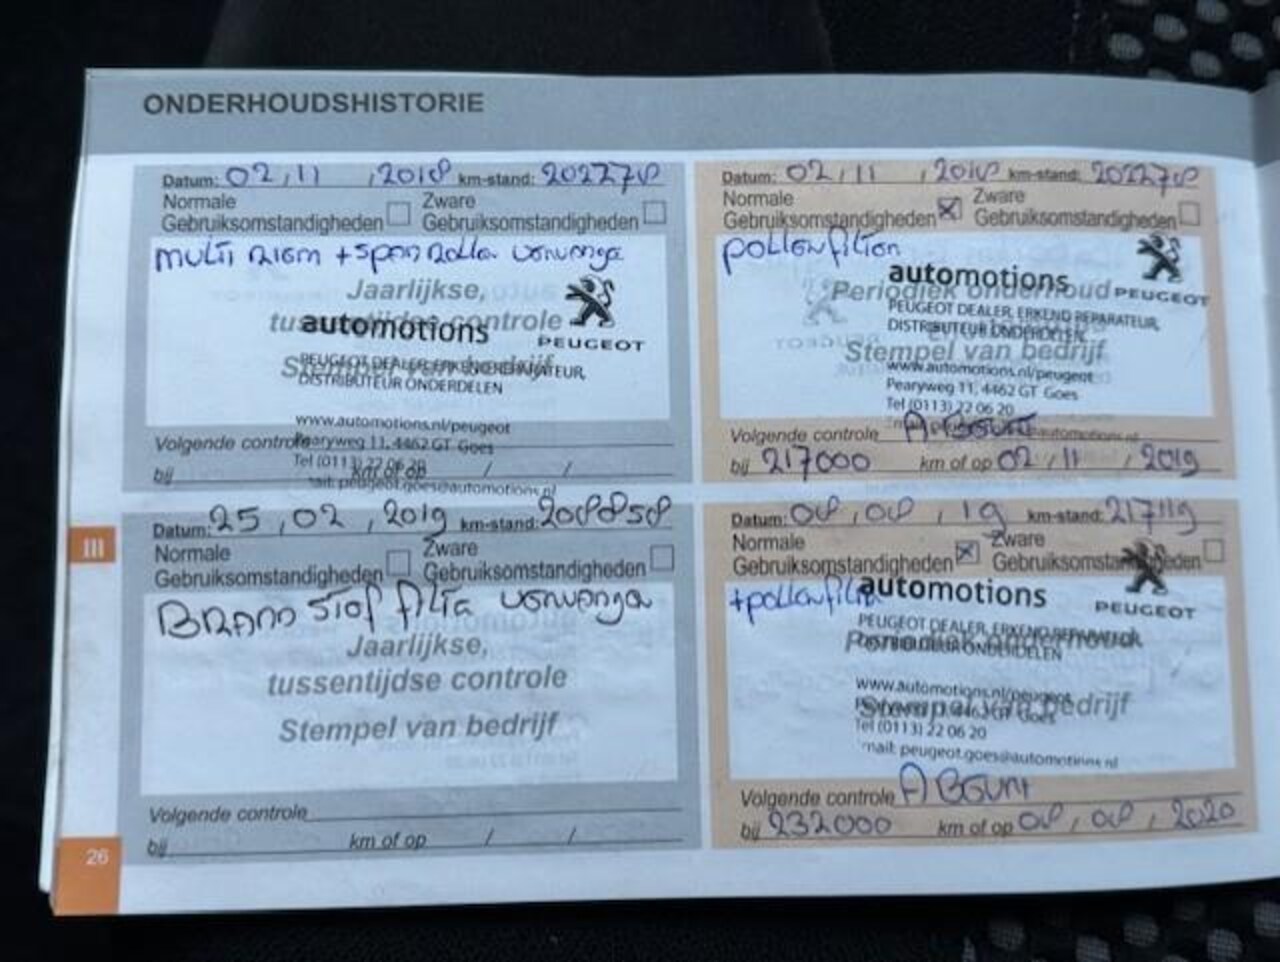 ONDERHOUDSHISTORIE
Datum: 02 / 11 / 2018 km-stand: 202278
Normale Gebruiksomstandigheden
Zware Gebruiksomstandigheden
multi riem + spanrollen vervangen
Jaarlijkse,
tussentijdse controle
Stempel van bedrijf
automotions
PEUGEOT
PEUGEOT DEALER, ERKEND REPARATEUR,
DISTRIBUTEUR ONDERDELEN
www.automotions.nl/peugeot
Pearyweg 11, 4462 GT Goes
Tel (0113) 22 06 20
mail: peugeot.goes@automotions.nl
Volgende controle
bij km of op / /
Datum: 02 / 11 / 2018 km-stand: 202278
Normale Gebruiksomstandigheden
Zware Gebruiksomstandigheden
pollenfilter
automotions
Periodiek onderhoud
PEUGEOT
PEUGEOT DEALER, ERKEND REPARATEUR,
DISTRIBUTEUR ONDERDELEN
Stempel van bedrijf
www.automotions.nl/peugeot
Pearyweg 11, 4462 GT Goes
Tel (0113) 22 06 20
Volgende controle A Beurt
bij 217000 km of op 02 / 11 / 2019
III
Datum: 25 / 02 / 2019 km-stand: 208858
Normale Gebruiksomstandigheden
Zware Gebruiksomstandigheden
Brandstof filter vervangen
Jaarlijkse,
tussentijdse controle
Stempel van bedrijf
Volgende controle
bij km of op / /
Datum: 08 / 08 / 19 km-stand: 217119
Normale Gebruiksomstandigheden
Zware Gebruiksomstandigheden
+pollenfilter
automotions
PEUGEOT
PEUGEOT DEALER, ERKEND REPARATEUR,
Periodiek onderhoud
DISTRIBUTEUR ONDERDELEN
www.automotions.nl/peugeot
Stempel van bedrijf
Pearyweg 11, 4462 GT Goes
Tel (0113) 22 06 20
mail: peugeot.goes@automotions.nl
Volgende controle A Beurt
bij 232000 km of op 08 / 08 / 2020
26